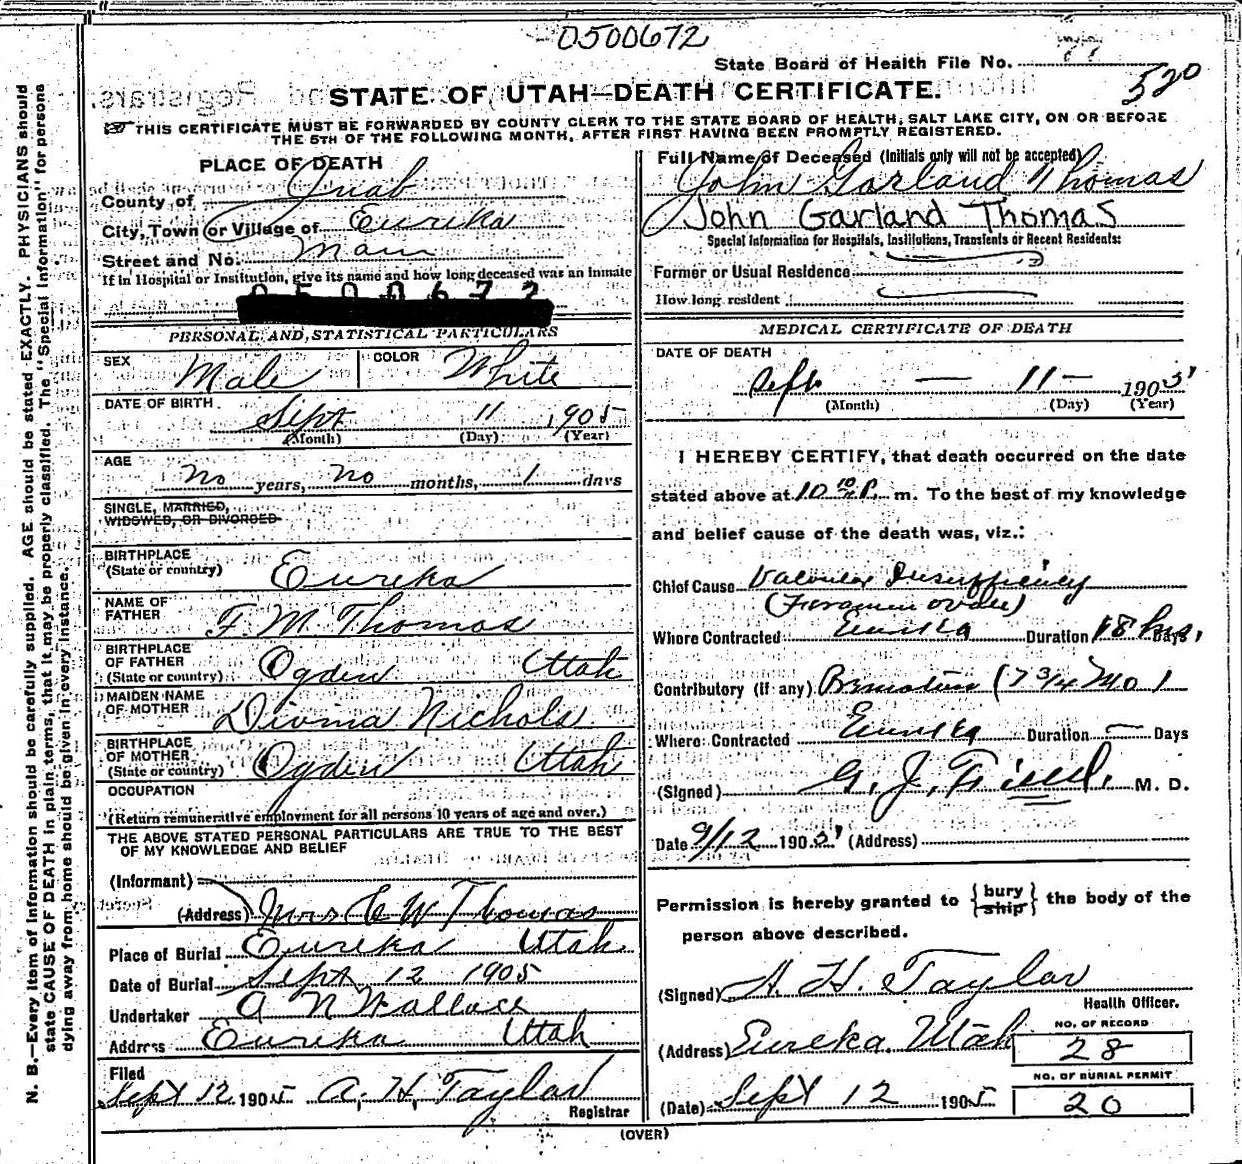 0500672
State Board of Health File No.
520
STATE OF UTAH—DEATH CERTIFICATE.
THIS CERTIFICATE MUST BE FORWARDED BY COUNTY CLERK TO THE STATE BOARD OF HEALTH, SALT LAKE CITY, ON OR BEFORE
THE 5TH OF THE FOLLOWING MONTH, AFTER FIRST HAVING BEEN PROMPTLY REGISTERED.
N. B.—Every item of information should be carefully supplied. AGE should be stated EXACTLY. PHYSICIANS should
state CAUSE OF DEATH in plain terms, that it may be properly classified. The "Special Information" for persons
dying away from home should be given in every instance.
PLACE OF DEATH
County of Juab
City, Town or Village of Eureka
Street and No. Main
If in Hospital or Institution, give its name and how long deceased was an inmate
0500672
PERSONAL AND STATISTICAL PARTICULARS
SEX Male COLOR White
DATE OF BIRTH
Sept 11 1905
(Month) (Day) (Year)
AGE
no years, no months, 1 days
SINGLE, MARRIED,
WIDOWED, OR DIVORCED
BIRTHPLACE
(State or country) Eureka
NAME OF
FATHER F. M. Thomas
BIRTHPLACE
OF FATHER
(State or country) Ogden Utah
MAIDEN NAME
OF MOTHER Divina Nichols
BIRTHPLACE
OF MOTHER
(State or country) Ogden Utah
OCCUPATION
(Return remunerative employment for all persons 10 years of age and over.)
THE ABOVE STATED PERSONAL PARTICULARS ARE TRUE TO THE BEST
OF MY KNOWLEDGE AND BELIEF
(Informant)
(Address) Mrs C W Thomas
Place of Burial Eureka Utah
Date of Burial Sept 12 1905
Undertaker A N Wallace
Address Eureka Utah
Filed
Sept 12 1905 A. H. Taylor
Registrar
Full Name of Deceased (Initials only will not be accepted)
John Garland Thomas
John Garland Thomas
Special Information for Hospitals, Institutions, Transients or Recent Residents:
Former or Usual Residence
How long resident
MEDICAL CERTIFICATE OF DEATH
DATE OF DEATH
Sept. — 11 — 1905
(Month) (Day) (Year)
I HEREBY CERTIFY, that death occurred on the date
stated above at 10 10 P. m. To the best of my knowledge
and belief cause of the death was, viz.:
Chief Cause Valvular Insufficiency
(Foramen ovale)
Where Contracted Eureka Duration 18 hrs. Days
Contributory (If any) (7 3/4 mo)
Where Contracted Eureka Duration — Days
(Signed) G. J. M. D.
Date 9/12 1905 (Address)
Permission is hereby granted to {bury ship} the body of the
person above described.
(Signed) A. H. Taylor
Health Officer.
(Address) Eureka, Utah
NO. OF RECORD
28
(Date) Sept 12 1905
NO. OF BURIAL PERMIT
20
(OVER)